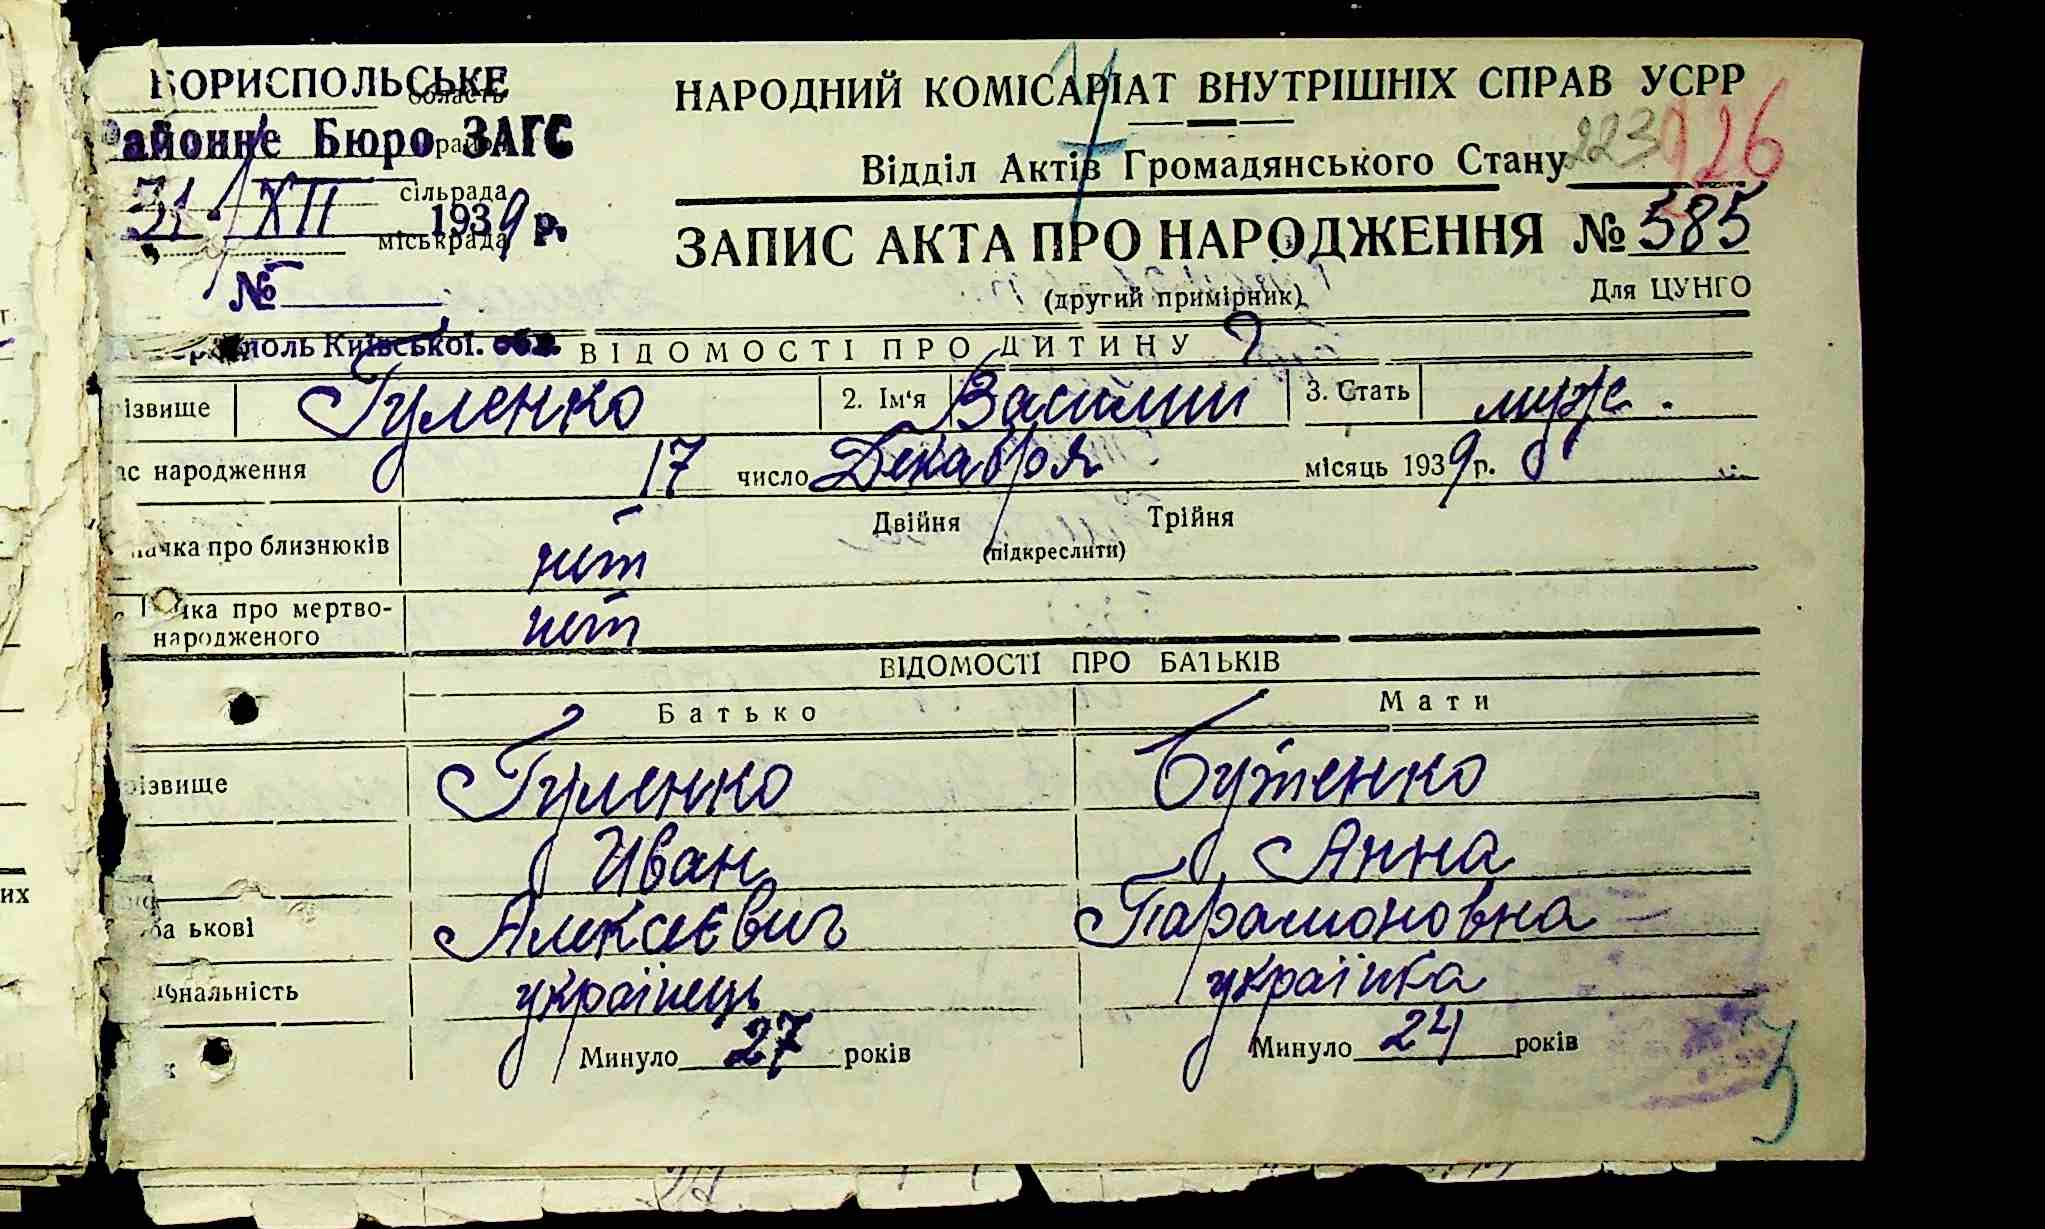 БОРИСПОЛЬСЬКЕ
область
Районне Бюро ЗАГС
31 XII 1939 р.
сільрада
міськрада
№
Київської обл.
НАРОДНИЙ КОМІСАРІАТ ВНУТРІШНІХ СПРАВ УСРР
Відділ Актів Громадянського Стану
223 126
ЗАПИС АКТА ПРО НАРОДЖЕННЯ № 585
(другий примірник) Для ЦУНГО
ВІДОМОСТІ ПРО ДИТИНУ
ізвище Гуленко 2. Ім'я Василий 3. Стать муж.
ас народження 17 число Декабря місяць 1939 р.
ачка про близнюків нет Двійня Трійня
(підкреслити)
чка про мертво-
народженого нет
ВІДОМОСТІ ПРО БАТЬКІВ
Батько Мати
різвище Гуленко Бутенко
Иван Анна
ба ькові Алексеєвич Парамоновна
ональність українець українка
к Минуло 27 років Минуло 24 років
их